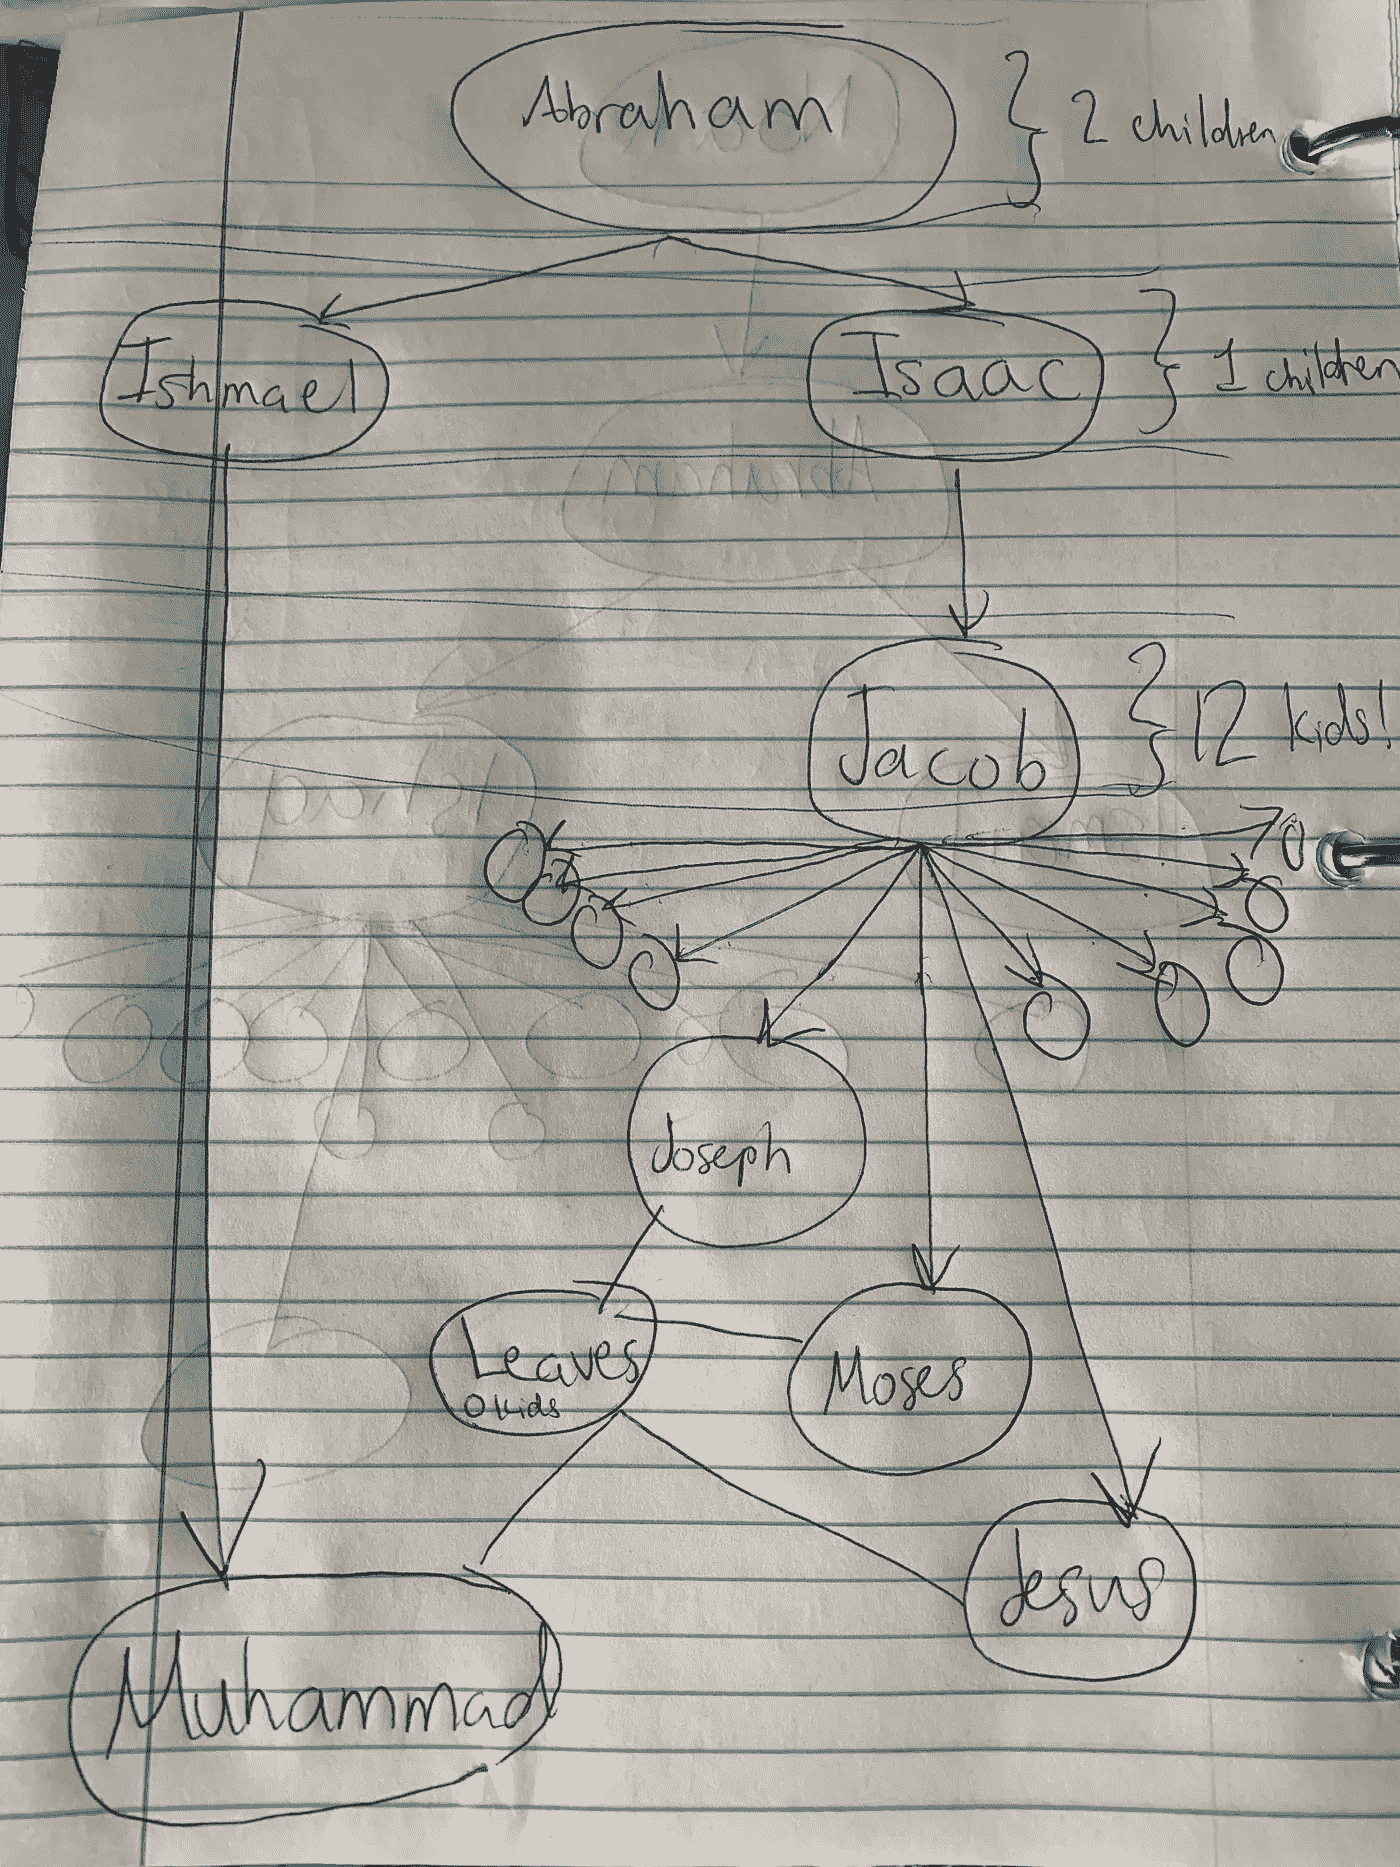 Abraham
2 children
Ishmael
Isaac
1 children
Jacob
12 kids!
Joseph
Leaves
0 kids
Moses
Jesus
Muhammad